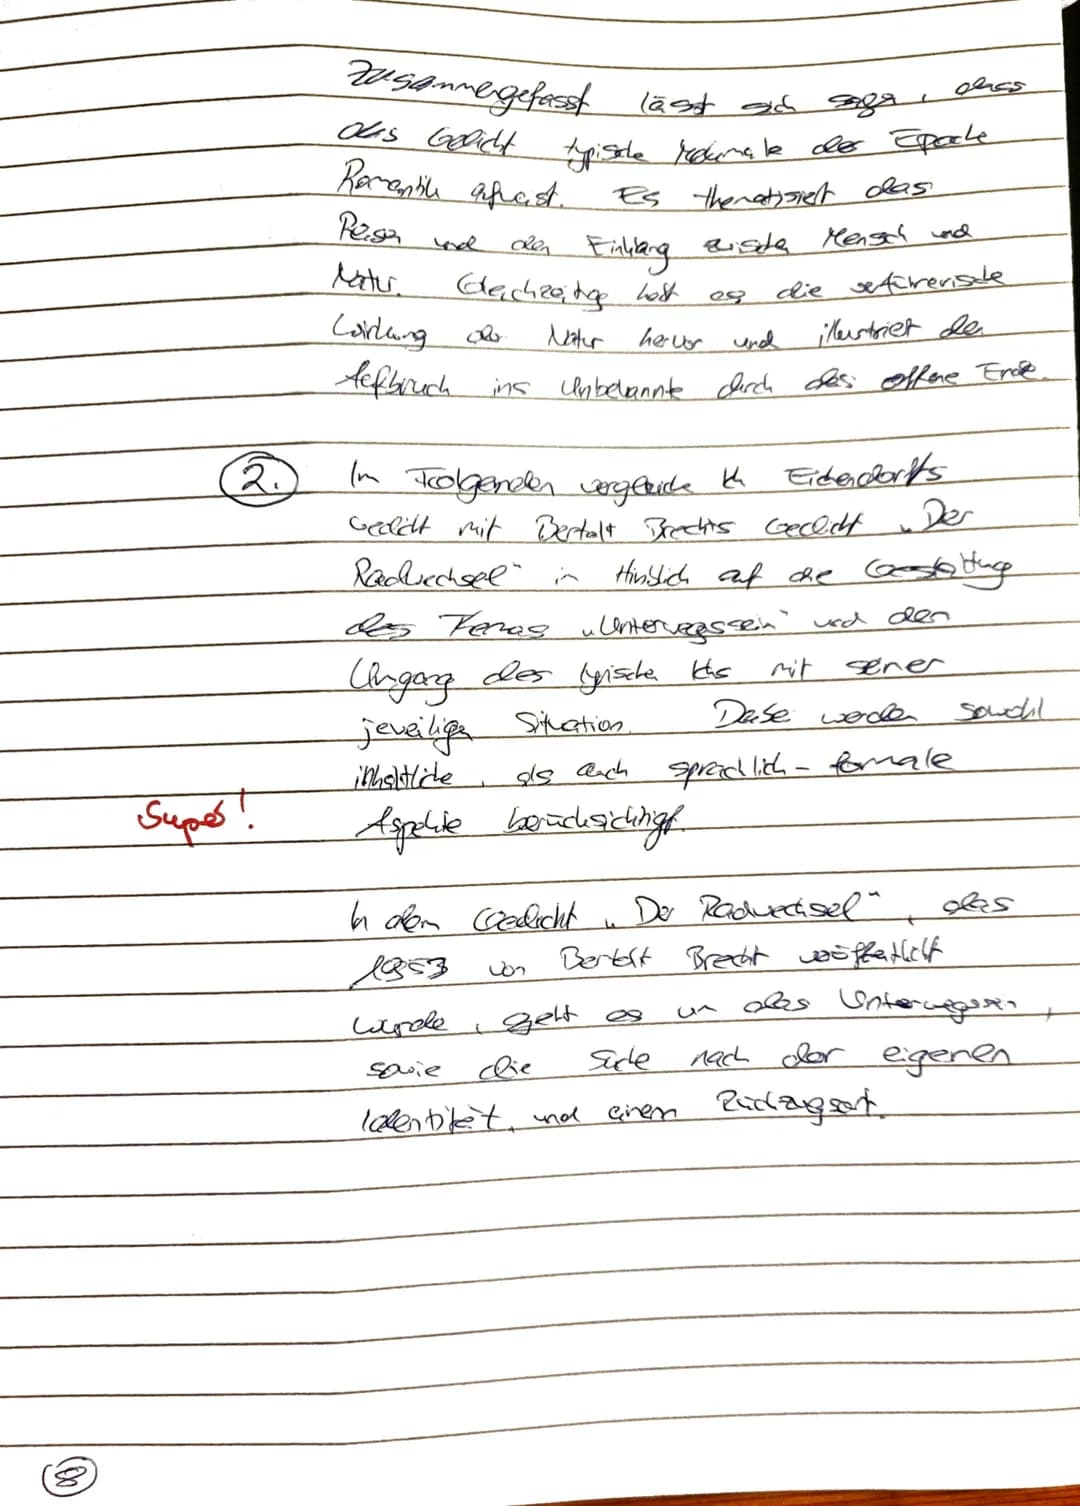 Zusammengefasst lässt sich sagen, dass
das Gedicht typische Merkmale der Epoche
Romantik aufweist. Es thematisiert das
Reisen und den Einklang zwischen Mensch und
Natur. Gleichzeitig hebt es die verführerische
Wirkung der Natur hervor und illustriert den
Aufbruch ins Unbekannte durch das offene Ende.
2. Im Folgenden vergleiche ich Eichendorffs
Gedicht mit Bertolt Brechts Gedicht „Der
Radwechsel" in Hinblick auf die Gestaltung
des Themas „Unterwegssein" und den
Umgang des lyrischen Ichs mit seiner
jeweiligen Situation. Dabei werden sowohl
inhaltliche, als auch sprachlich-formale
Super! Aspekte berücksichtigt.
In dem Gedicht „Der Radwechsel", das
1953 von Bertolt Brecht veröffentlicht
wurde, geht es um das Unterwegssein,
sowie die Suche nach der eigenen
Identität, und einem Rückzugsort.
8